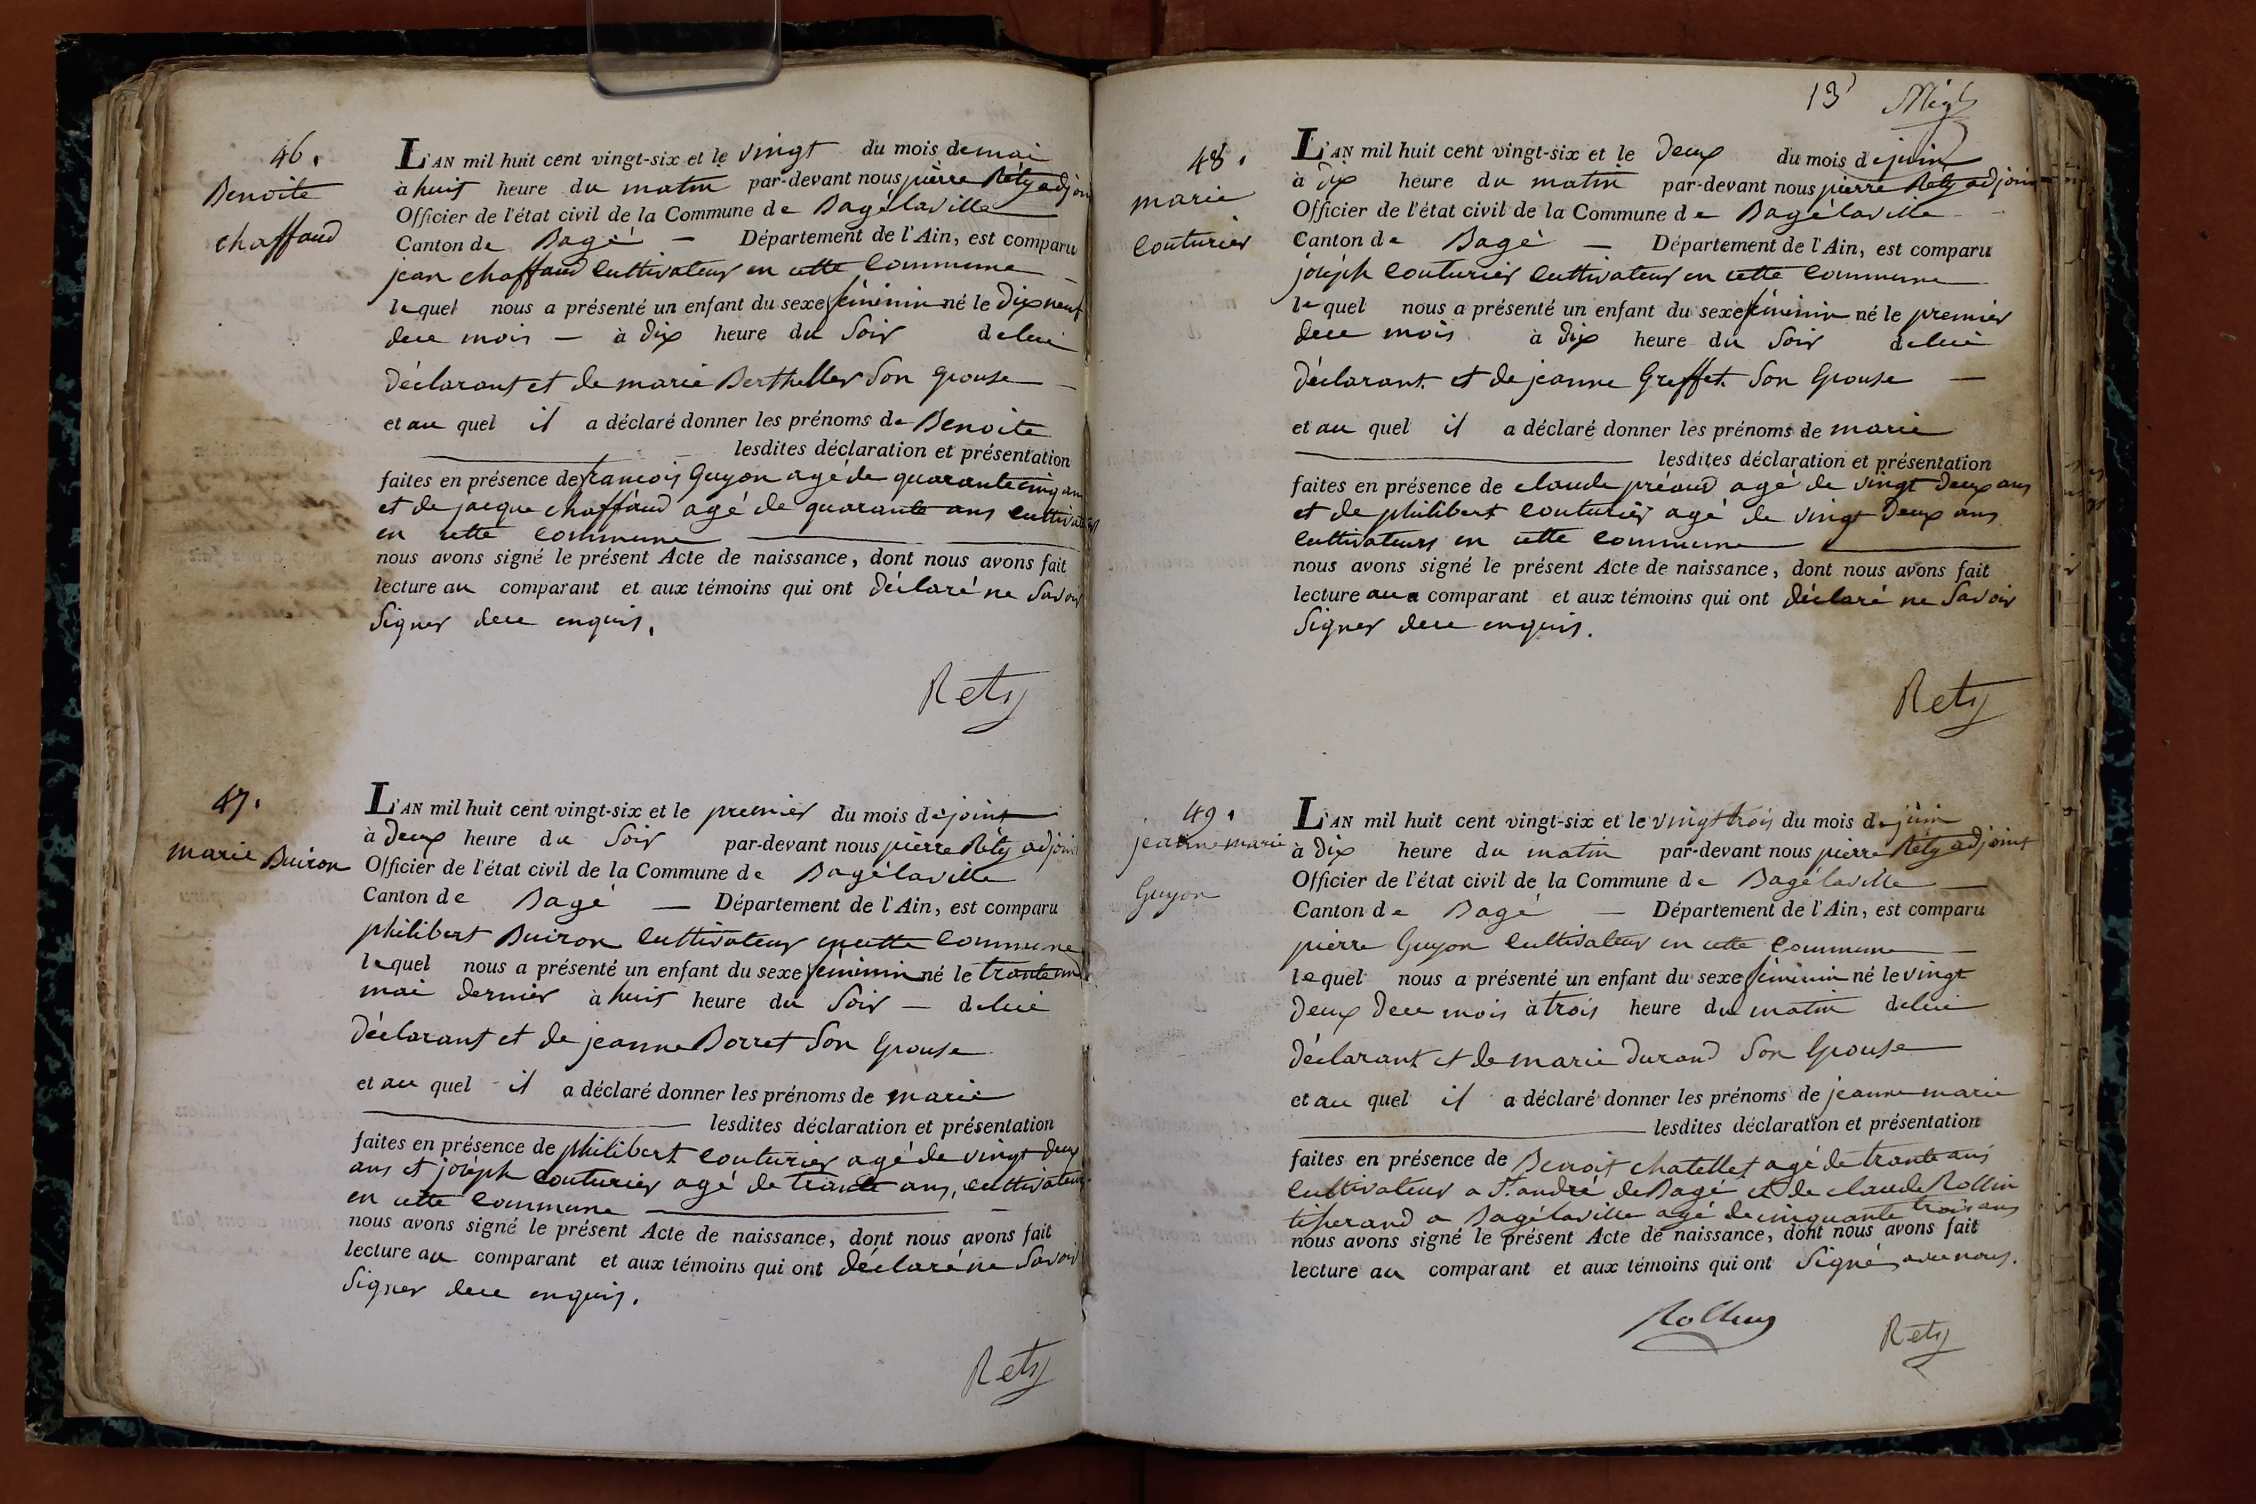 46.
Benoite
chaffaud
L'AN mil huit cent vingt-six et le vingt du mois de mai
à huit heure du matin par-devant nous pierre Réty adjoin
Officier de l'état civil de la Commune de Bagélaville
Canton de Bagé — Département de l'Ain, est comparu
jean chaffaud Cultivateur en cette Commune
lequel nous a présenté un enfant du sexe féminin né le dix neuf
dece mois — à dix heure du Soir delui
déclarant et de marie Berthellet Son épouse —
et au quel il a déclaré donner les prénoms de Benoite
lesdites déclaration et présentation
faites en présence de francois Guyon agé de quarantecinq ans
et de jacque chaffaud agé de quarante ans cultivateurs
en cette commune
nous avons signé le présent Acte de naissance, dont nous avons fait
lecture au comparant et aux témoins qui ont déclaré ne Savoir
Signer dece enquis.
Rety
47.
marie Buiron
L'AN mil huit cent vingt-six et le premier du mois de joint
à deux heure du Soir par-devant nous pierre Réty adjoint
Officier de l'état civil de la Commune de Bagélaville
Canton de Bagé — Département de l'Ain, est comparu
philibert Buiron Cultivateur en cette Commune
lequel nous a présenté un enfant du sexe féminin né le trante un
mai dernier à huit heure du Soir — delui
déclarant et de jeanne Borret Son épouse
et au quel il a déclaré donner les prénoms de marie
lesdites déclaration et présentation
faites en présence de philibert couturier agé de vingt deux
ans et joséph couturier agé de trante ans, cultivateurs
en cette commune
nous avons signé le présent Acte de naissance, dont nous avons fait
lecture au comparant et aux témoins qui ont déclaré ne Savoir
Signer dece enquis.
Rety
13
48.
marie
couturier
L'AN mil huit cent vingt-six et le deux du mois de juin
à dix heure du matin par-devant nous pierre Réty adjoint
Officier de l'état civil de la Commune de Bagélaville
Canton de Bagé — Département de l'Ain, est comparu
joséph couturier Cultivateur en cette commune
lequel nous a présenté un enfant du sexe féminin né le premier
dece mois à dix heure du Soir delui
déclarant et de jeanne Greffet Son épouse —
et au quel il a déclaré donner les prénoms de marie
lesdites déclaration et présentation
faites en présence de claude préaud agé de vingt deux ans
et de philibert couturier agé de vingt deux ans
cultivateurs en cette commune
nous avons signé le présent Acte de naissance, dont nous avons fait
lecture au comparant et aux témoins qui ont déclaré ne Savoir
Signer dece enquis.
Rety
49.
jeanne marie
Guyon
L'AN mil huit cent vingt-six et le vingt trois du mois de juin
à dix heure du matin par-devant nous pierre Réty adjoint
Officier de l'état civil de la Commune de Bagélaville
Canton de Bagé — Département de l'Ain, est comparu
pierre Guyon Cultivateur en cette Commune
lequel nous a présenté un enfant du sexe féminin né le vingt
deux dece mois à trois heure du matin delui
déclarant et de marie durand Son épouse
et au quel il a déclaré donner les prénoms de jeanne marie
lesdites déclaration et présentation
faites en présence de Benoit chatellet agé de trante ans
Cultivateur a St. andré de Bagé et de claude Rollin
tisserand a Bagélaville agé de cinquante trois ans
nous avons signé le présent Acte de naissance, dont nous avons fait
lecture au comparant et aux témoins qui ont Signé avec nous.
Rollin
Rety